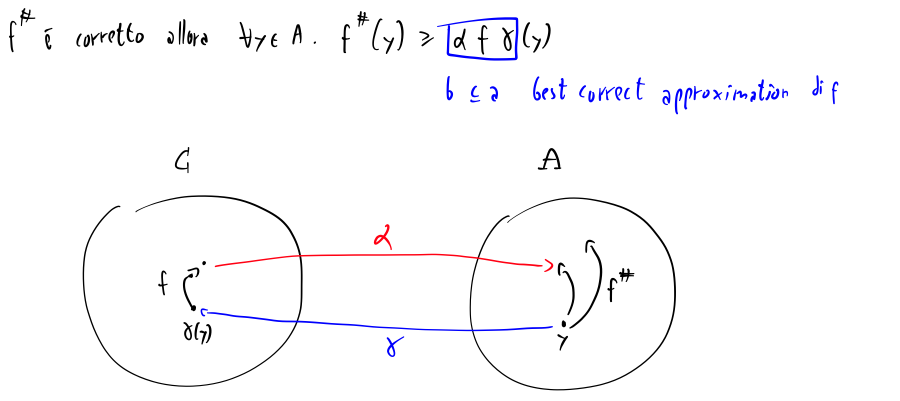 f# è corretto allora ∀y∈A. f#(y) ≥ α f γ(y)
b c a best correct approximation di f
C A
α
f f#
γ(y) y
γ